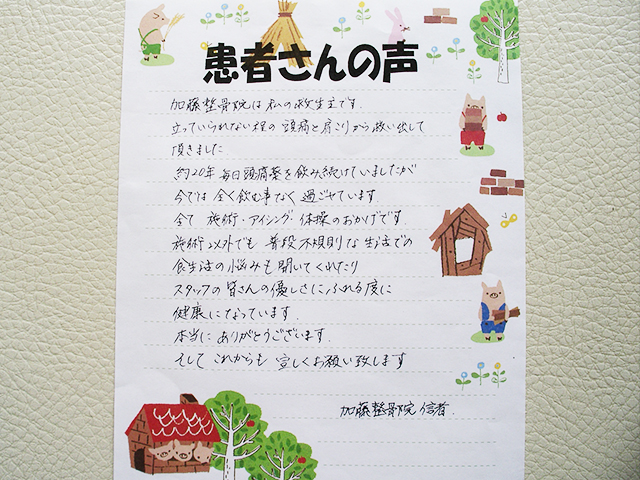 患者さんの声
加藤整骨院は私の救世主です。
立っていられない程の頭痛と肩こりから救い出して
頂きました
約20年毎日頭痛薬を飲み続けていましたが
今では全く飲む事なく過ごせています。
全て施術・アイシング・体操のおかげです。
施術以外でも普段不規則な生活での
食生活の悩みも聞いてくれたり
スタッフの皆さんの優しさにふれる度に
健康になっています。
本当にありがとうございます。
そしてこれからも宜しくお願い致します
加藤整骨院信者.